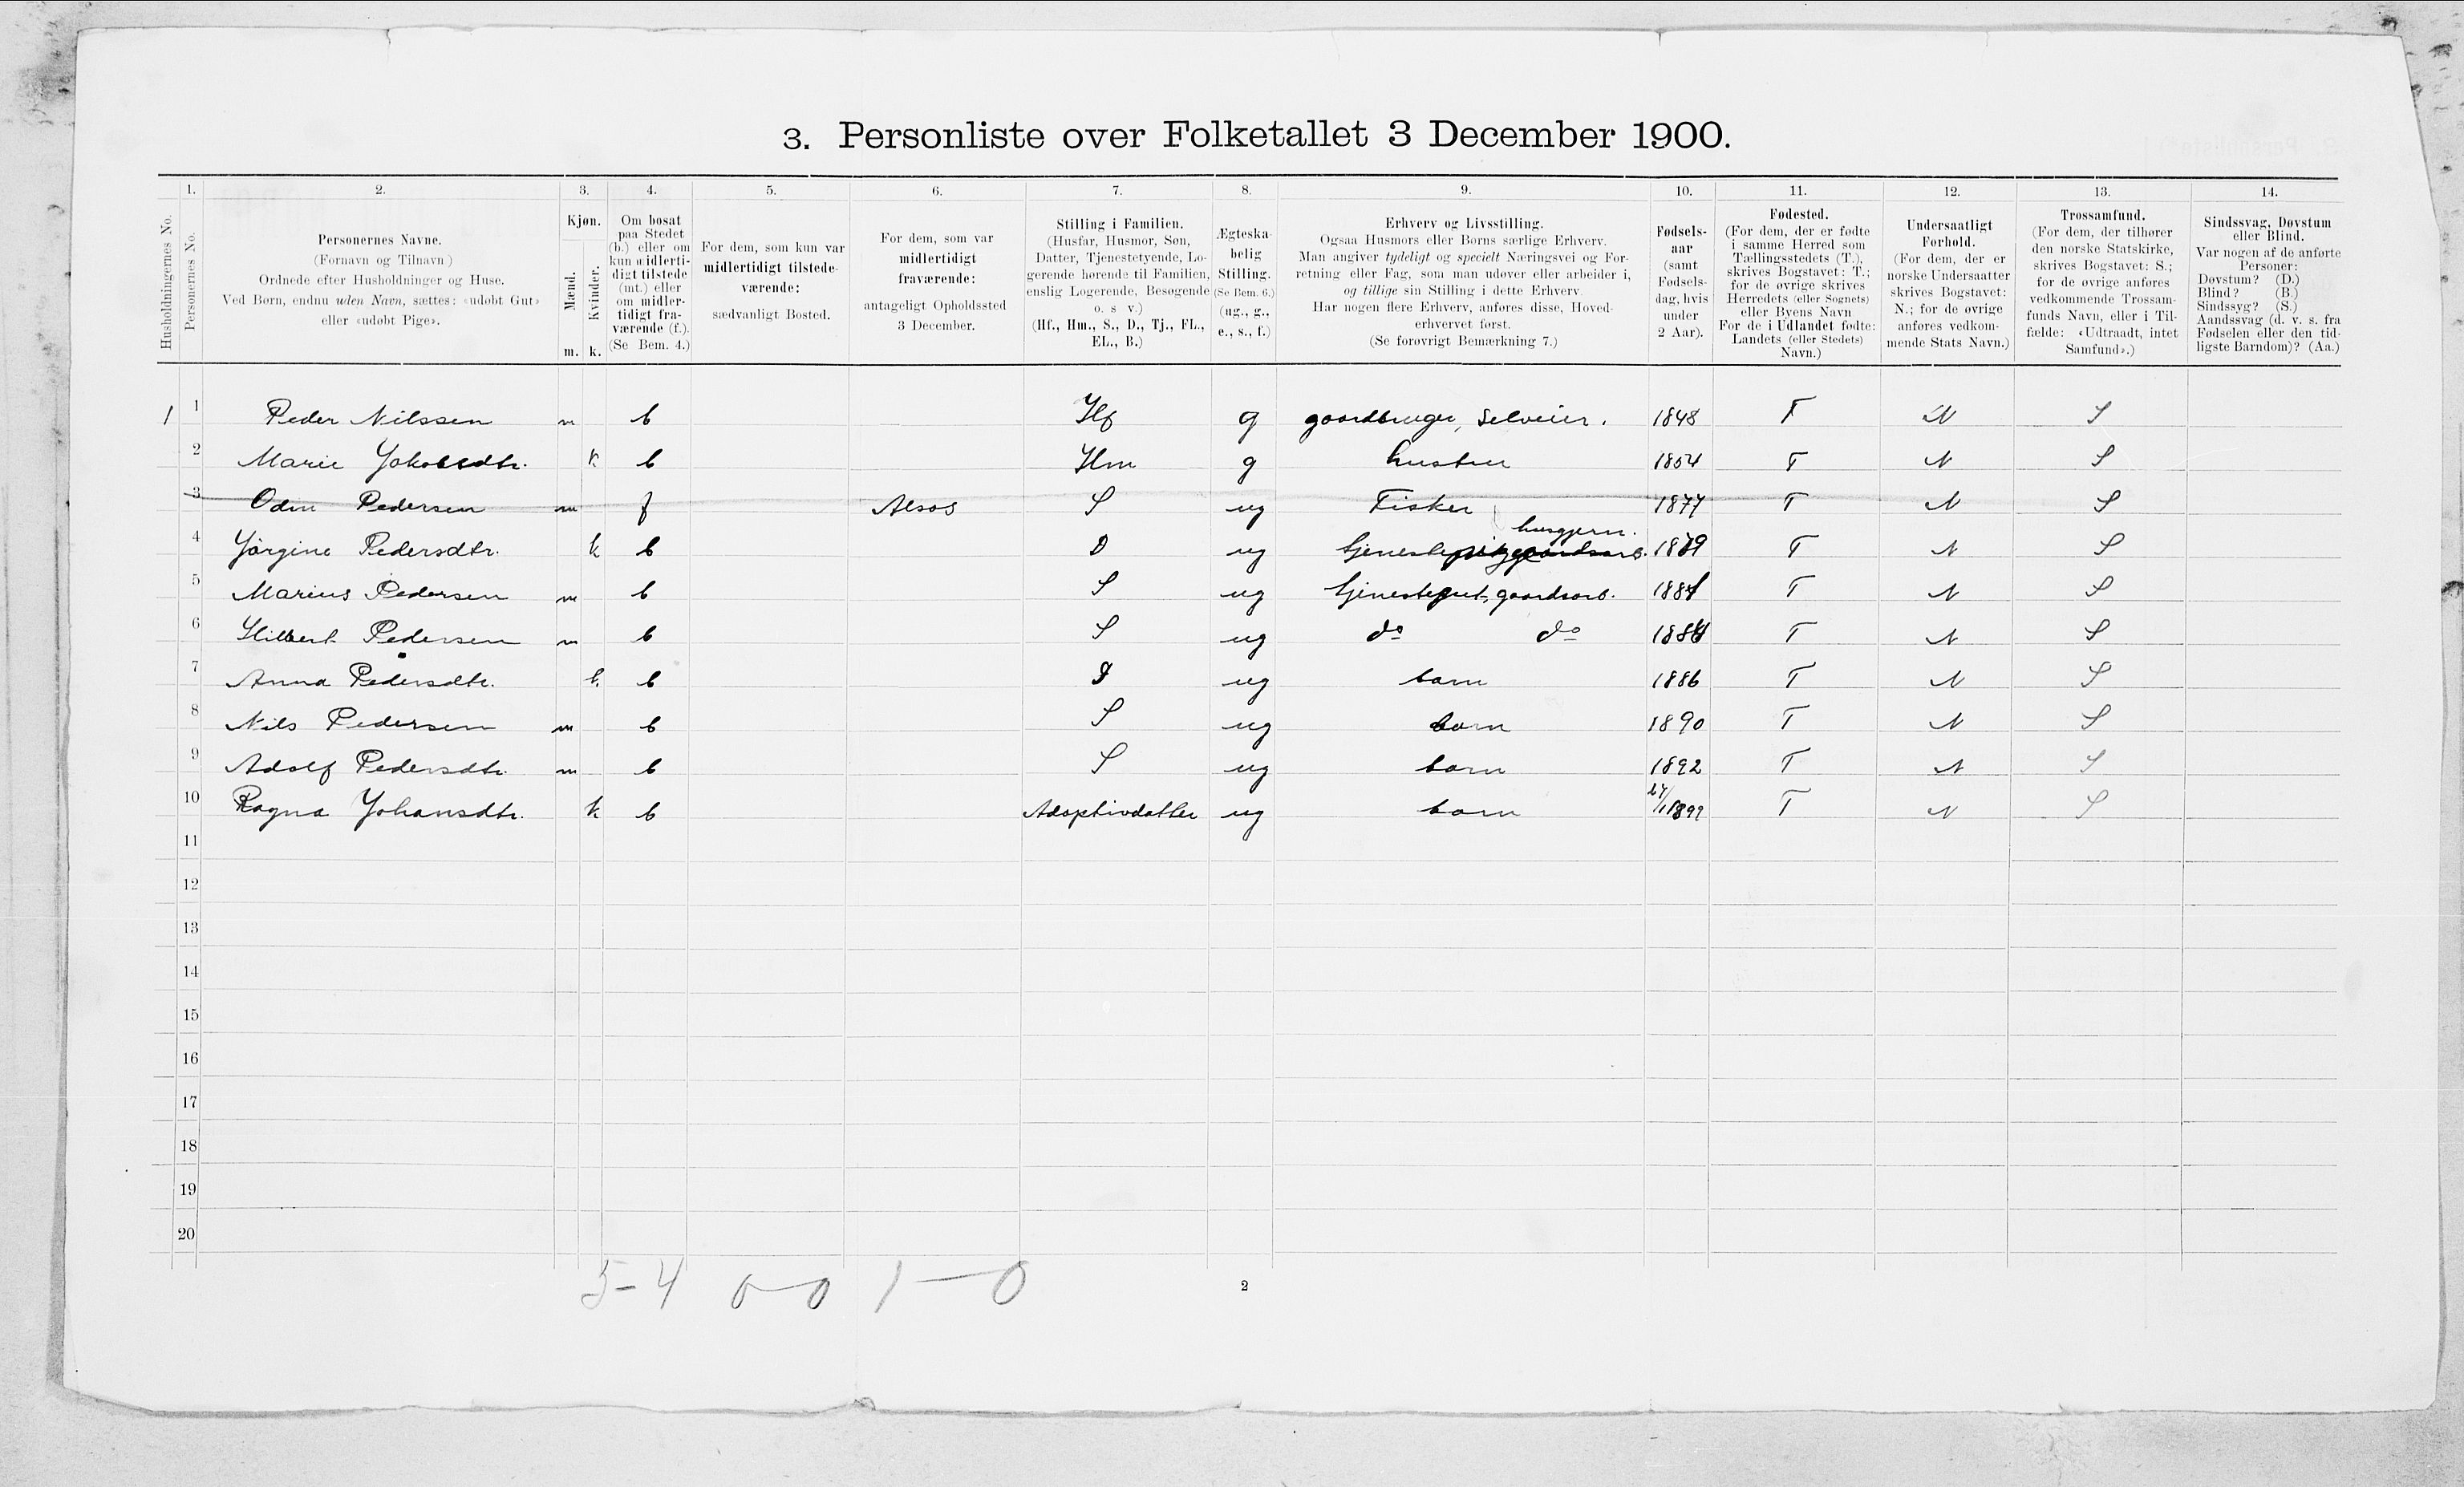 3. Personliste over Folketallet 3 December 1900.
1. 2. 3. 4. 5. 6. 7. 8. 9. 10. 11. 12. 13. 14.
Husholdningernes No.
Personernes No.
Personernes Navne.
(Fornavn og Tilnavn)
Ordnede efter Husholdninger og Huse.
Ved Børn, endnu uden Navn, sættes: «udøbt Gut»
eller «udøbt Pige».
Kjøn.
Mænd.
Kvinder.
m. k.
Om bosat
paa Stedet
(b.) eller om
kun midlerti-
digt tilstede
(mt.) eller
om midler-
tidigt fra-
værende (f.).
(Se Bem. 4.)
For dem, som kun var
midlertidigt tilstede-
værende:
sædvanligt Bosted.
For dem, som var
midlertidigt
fraværende:
antageligt Opholdssted
3 December.
Stilling i Familien.
(Husfar, Husmor, Søn,
Datter, Tjenestetyende, Lo-
gerende hørende til Familien,
enslig Logerende, Besøgende
o. s v.)
(Hf., Hm., S., D., Tj., FL.,
EL., B.)
Ægteska-
belig
Stilling.
(Se Bem. 6.)
(ug., g.,
e., s., f.)
Erhverv og Livsstilling.
Ogsaa Husmors eller Børns særlige Erhverv.
Man angiver tydeligt og specielt Næringsvei og For-
retning eller Fag, som man udøver eller arbeider i,
og tillige sin Stilling i dette Erhverv.
Har nogen flere Erhverv, anføres disse, Hoved-
erhvervet først.
(Se forøvrigt Bemærkning 7.)
Fødsels-
aar
(samt
Fødsels-
dag, hvis
under
2 Aar).
Fødested.
(For dem, der er fødte
i samme Herred som
Tællingsstedets (T.),
skrives Bogstavet: T.;
for de øvrige skrives
Herredets (eller Sognets)
eller Byens Navn
For de i Udlandet fødte:
Landets (eller Stedets)
Navn.)
Undersaatligt
Forhold.
(For dem, der er
norske Undersaatter
skrives Bogstavet:
N.; for de øvrige
anføres vedkom-
mende Stats Navn.)
Trossamfund.
(For dem, der tilhører
den norske Statskirke,
skrives Bogstavet: S.;
for de øvrige anføres
vedkommende Trossam-
funds Navn, eller i Til-
fælde: «Udtraadt, intet
Samfund».)
Sindssvag, Døvstum
eller Blind.
Var nogen af de anførte
Personer:
Døvstum? (D.)
Blind? (B.)
Sindssyg? (S.)
Aandssvag (d. v. s. fra
Fødselen eller den tid-
ligste Barndom)? (Aa.)
1 1 Peder Nilssen m b Hf g gaardbruger, Selveier. 1848 T N S
2 Marie Jakobsdtr. k b Hm g hustru 1854 T N S
3 Odin Pedersen m f Alsos S ug Fisker 1877 T N S
husgjern.
4 Jørgine Pedersdtr. k b D ug tjenestepige 1879 T N S
5 Marius Pedersen m b S ug tjenestegut, gaardsarb. T N S
6 Pedersen m b S ug do do T N S
7 Anna Pedersdtr. k b D ug barn 1886 T N S
8 Nils Pedersen m b S ug barn 1890 T N S
9 Adolf Pedersdtr. m b S ug barn 1892 T N S
10 Ragna Johansdtr. k b Adoptivdatter ug barn T N S
11
12
13
14
15
16
17
18
19
20
5-4 0-0 1-0
2